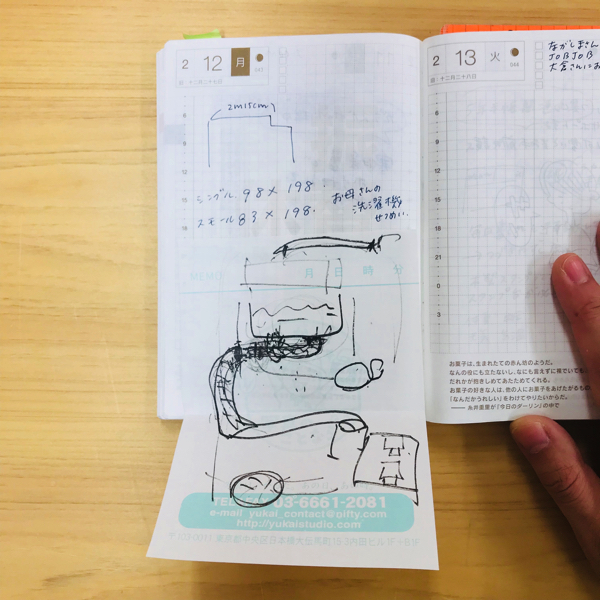 2 12 月
043
十二月二十七日
2m15cm
8
9
12
15
18
シングル 98 × 198.
スモール 83 × 198.
お母さんの
洗濯機
せつめい.
MEMO 月 日 時 分
03-6661-2081
e-mail yukai_contact@nifty.com
http://yukaistudio.com
2 13 火
044
十二月二十八日
ながしまさん
JOBJOB
大倉さんにお
6
9
12
15
18
21
0
3
お菓子は、生まれたての赤ん坊のようだ。
なんの役にも立たないし、なにも言えずに寝ていて
だれかが抱きしめてあたためてくれる。
お菓子の好きな人は、他の人にお菓子をあげたがるもの。
「なんだかうれしい」をわけてやりたいからだ。
—— 糸井重里が『今日のダーリン』の中で